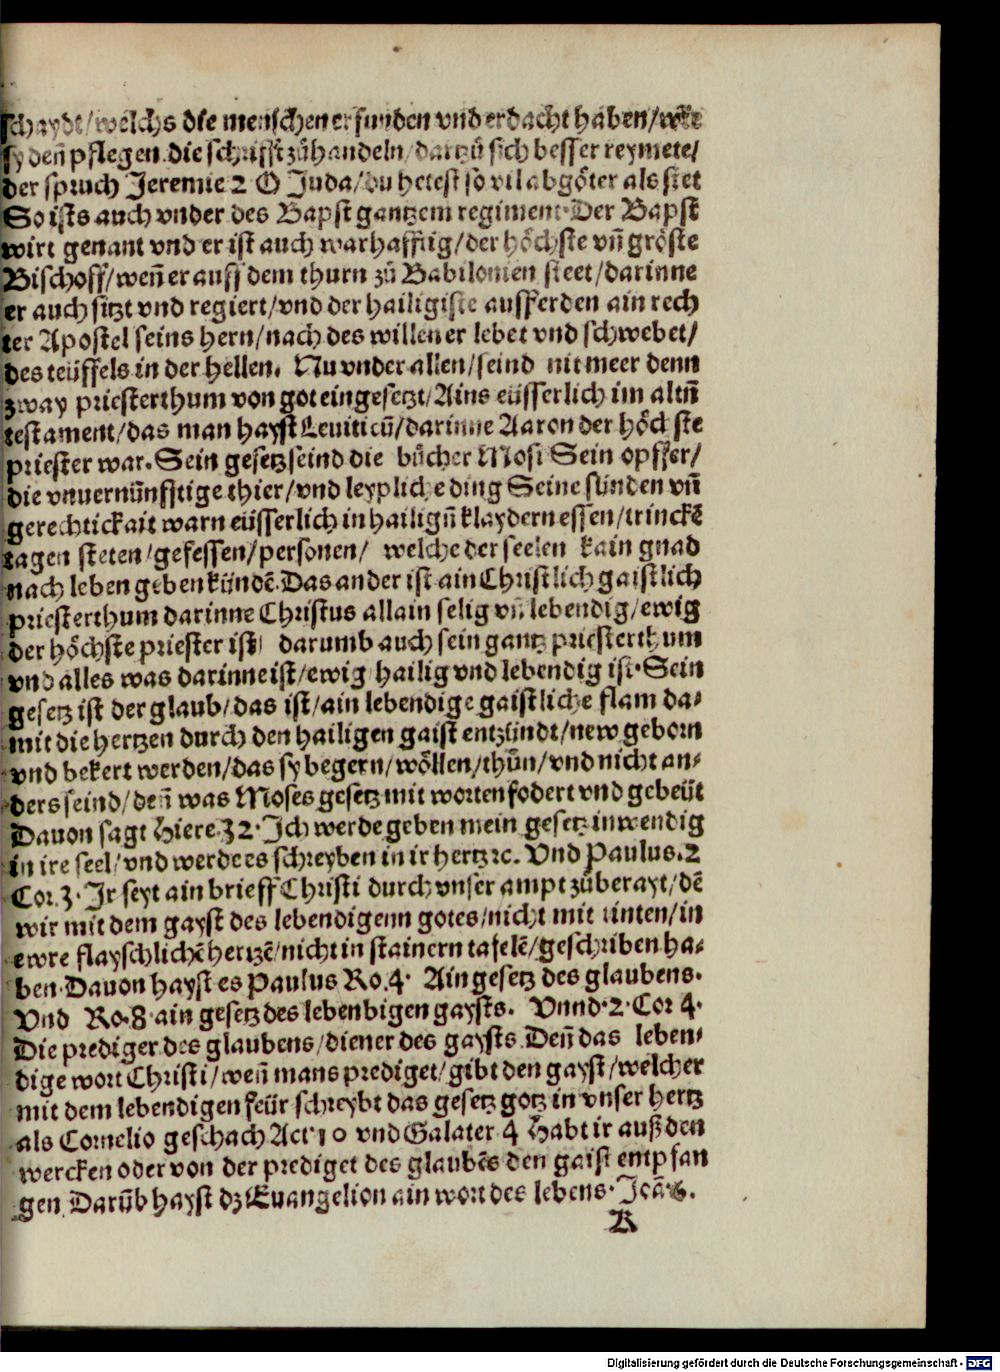 schaydt/welchs die menschen erfunden vnd erdacht haben/wie
sy deñ pflegen die schrifft zůhandeln/dartzů sich besser reymete/
der spruch Jeremie 2 O Juda/du hetest so vil abgöter als stet
So ists auch vnder des Bapst gantzem regiment. Der Bapst
wirt genant vnd er ist auch warhafftig/der höchste vñ gröste
Bischoff/weñ er auff dem thurn zů Babilonien steet/darinne
er auch sitzt vnd regiert/vnd der hailigiste aufferden ain rech
ter Apostel seins hern/nach des willen er lebet vnd schwebet/
des teüffels in der hellen. Nu vnder allen/seind nit meer denn
zway priesterthum von got eingesetzt/Ains eüsserlich im altñ
testament/das man hayst Leuiticũ/darinne Aaron der höchste
priester war. Sein gesetz seind die bücher Mosi Sein opffer/
die vnuernünfftige thier/vnd leypliche ding Seine sünden vñ
gerechtickait warn eüsserlich in hailigñ klaydern essen/trinckē
tagen steten/gefessen/personen/ welche der seelen kain gnad
nach leben geben kündē. Das ander ist ain Christlich gaistlich
priesterthum darinne Christus allain selig vñ lebendig/ewig
der höchste priester ist/ darumb auch sein gantz priesterthum
vnd alles was darinne ist/ewig hailig vnd lebendig ist. Sein
gesetz ist der glaub/das ist/ain lebendige gaistliche flam da-
mit die hertzen durch den hailigen gaist entzündt/new geborn
vnd bekert werden/das sy begern/wöllen/thůn/vnd nicht an-
ders seind/deñ was Moses gesetz mit worten fodert vnd gebeüt
Dauon sagt Hiere. 32. Ich werde geben mein gesetz inwendig
in ire seel/vnd werde es schreyben in ir hertz ꝛc. Vnd Paulus. 2
Cor. 3. Ir seyt ain brieff Christi durch vnser ampt zůberayt/dē
wir mit dem gayst des lebendigenn gotes/nicht mit tinten/in
ewre flayschlichē hertzē/nicht in stainern tafelē/geschriben ha-
ben. Dauon hayst es Paulus Ro. 4. Ain gesetz des glaubens.
Vnd Ro. 8 ain gesetz des lebenbigen gaysts. Vnnd. 2. Cor 4.
Die prediger des glaubens/diener des gaysts. Deñ das leben-
dige wort Christi/weñ mans prediget/gibt den gayst/welcher
mit dem lebendigen feür schreybt das gesetz gotz in vnser hertz
als Cornelio geschach Act 10 vnd Galater 4 Habt ir auß den
wercken oder von der prediget des glaubēs den gaist empfan
gen. Darũb hayst dz Euangelion ain wort des lebens. Joā 6.
K
Digitalisierung gefördert durch die Deutsche Forschungsgemeinschaft - DFG